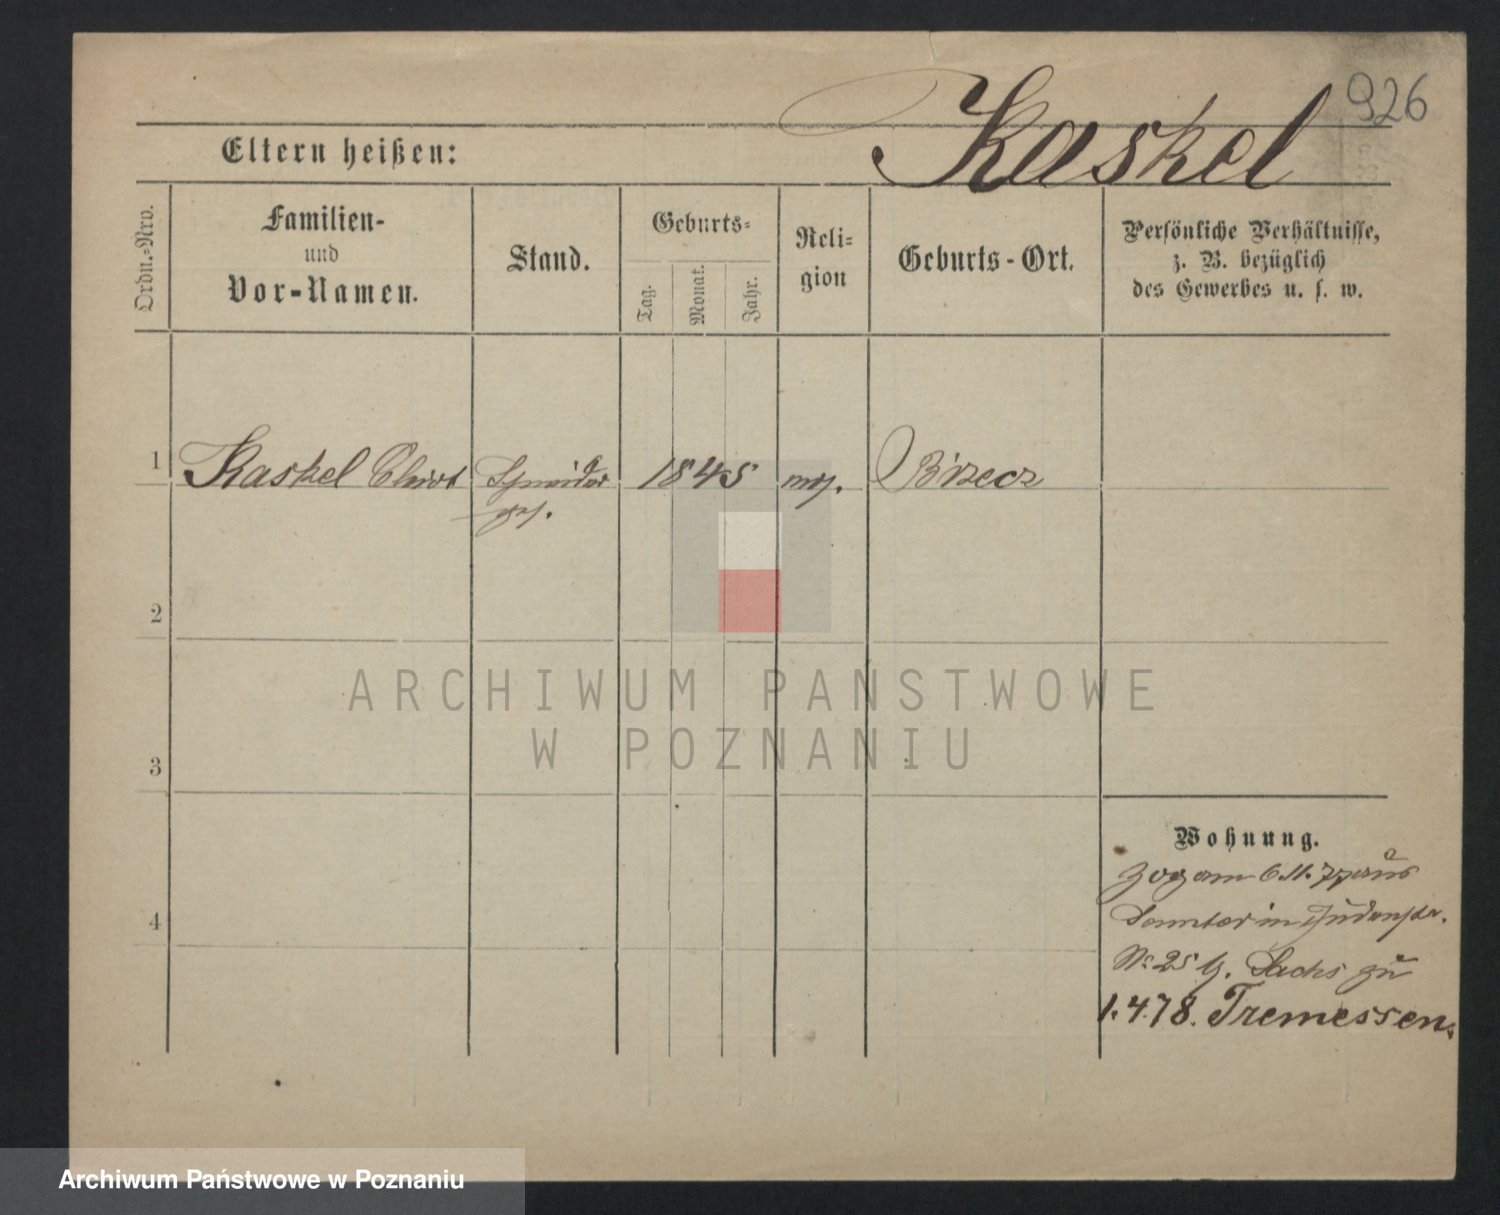 926
Kaskel
Eltern heißen:
Ordn.-Nro.
Familien-
und
Vor-Namen.
Stand.
Geburts-
Tag.
Monat.
Jahr.
Reli-
gion
Geburts-Ort.
Persönliche Verhältnisse,
z. B. bezüglich
des Gewerbes u. s. w.
1
Kaskel
Schneider
1845
mos.
2
ARCHIWUM PAŃSTWOWE
W POZNANIU
3
Wohnung.
zog am 6.11.77 aus
in Judenstr.
4
No 25 b. Sachs zu
1.4.78. Tremessen.
Archiwum Państwowe w Poznaniu